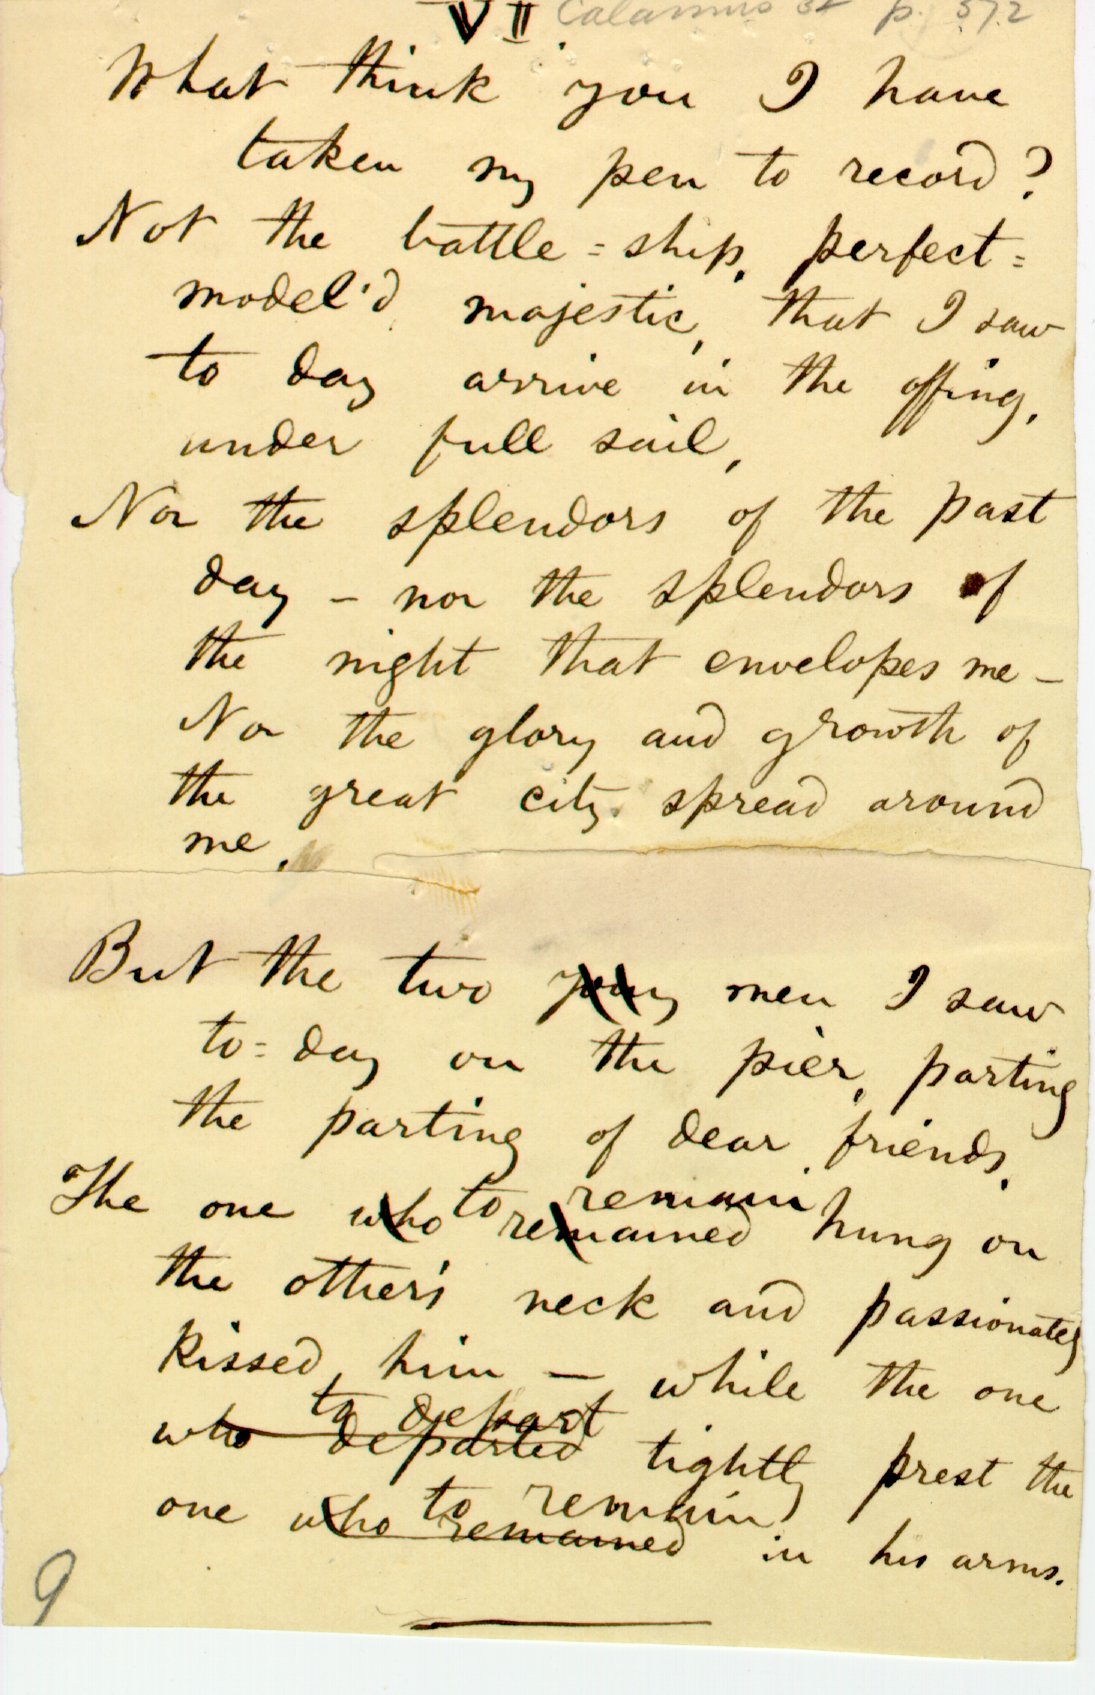 VII Calamus 32 p. 372
What think you I have
taken my pen to record?
Not the battle=ship, perfect=
model'd, majestic, that I saw
to day arrive in the offing,
under full sail,
Nor the splendors of the past
day – nor the splendors of
the night that envelopes me –
Nor the glory and growth of
the great city spread around
me,
But the two young men I saw
to=day on the pier, parting
the parting of dear friends.
to remain
The one who remained hung on
the other's neck and passionately
kissed him — while the one
to depart
who departed tightly prest the
to remain
one who remained in his arms.
9